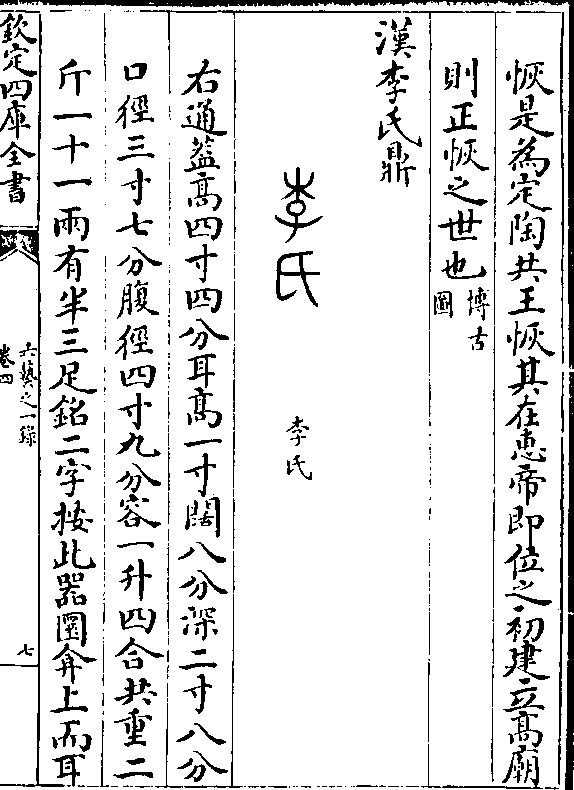 恢是為定陶共王恢其在惠帝即位之初建立髙廟
則正恢之世也博古圖
漢李氏鼎
李氏
李氏
右通葢髙四寸四分耳髙一寸闊八分深二寸八分
口徑三寸七分腹徑四寸九分容一升四合共重二
斤一十一兩有半三足銘二字按此器圜弇上而耳
欽定四庫全書
六藝之一錄
卷四
七